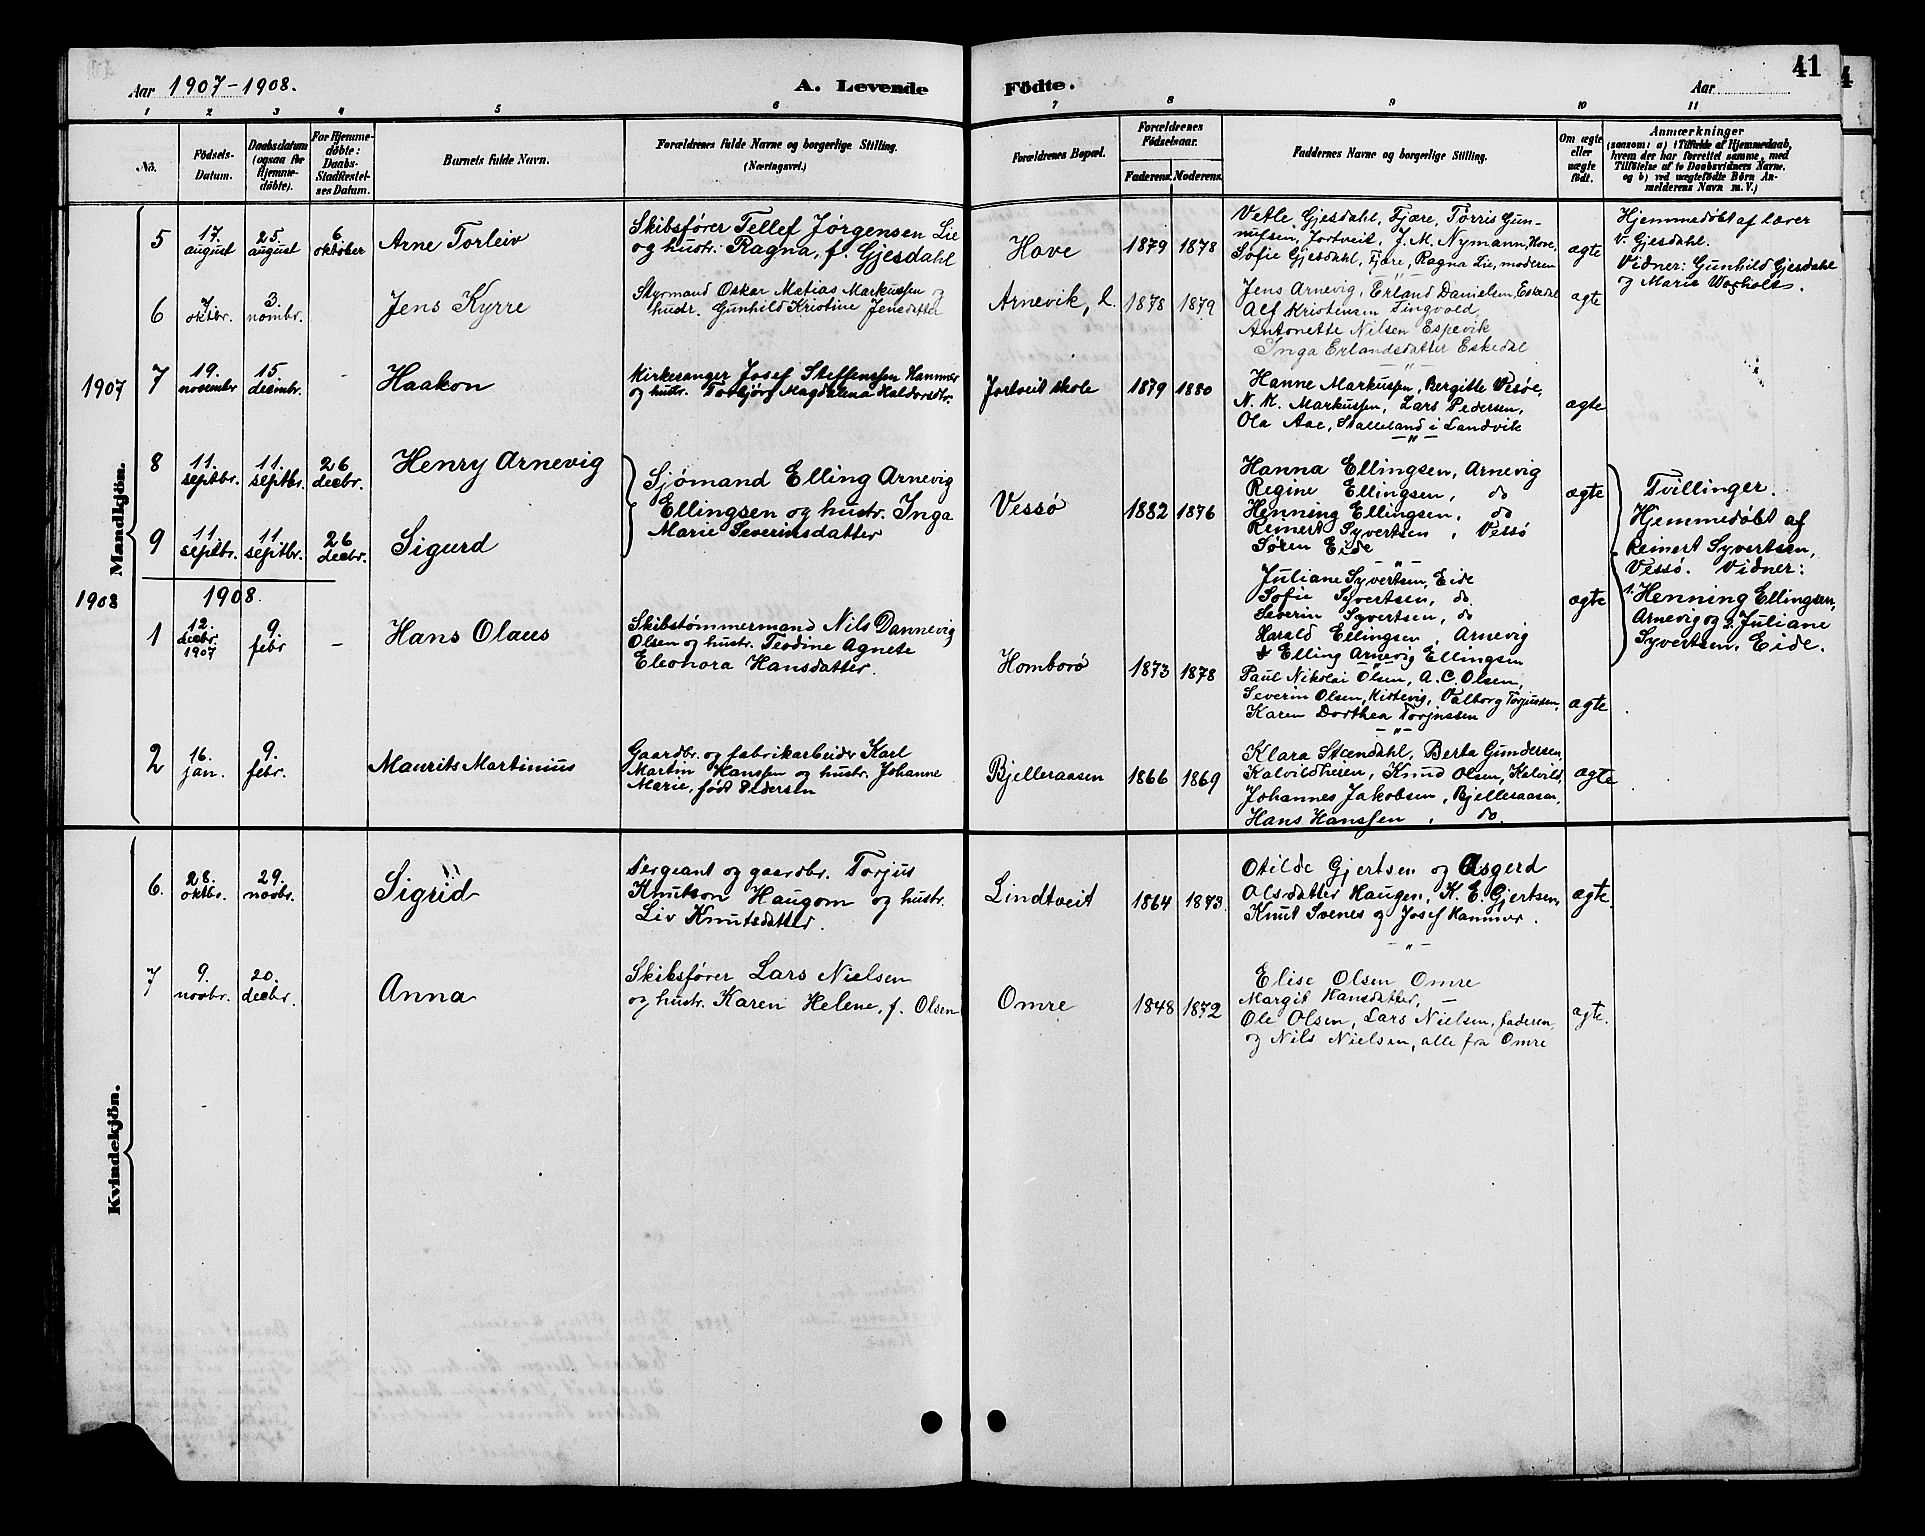 Aar 1907-1908.
A. Levende
Fødte.
Aar
41
1 2 3 4 5 6 7 8 9 10 11
No.
Fødsels-Datum.
Daabsdatum (ogsaa for Hjemmedøbte).
For Hjemmedøbte: Daabs-Stadfestelses Datum.
Barnets fulde Navn.
Forældrenes fulde Navne og borgerlige Stilling. (Næringsvei.)
Forældrenes Bopæl.
Forældrenes Fødselsaar.
Faderens. Moderens.
Faddernes Navne og borgerlige Stilling.
Om ægte eller uægte født.
Anmærkninger
(saasom: a) i Tilfælde af Hjemmedaab, hvem der har forrettet samme, med Tilføielse af to Daabsvidners Navne, og b) ved uægtefødte Børn Anmelderens Navn m. V.)
Mandkjøn.
5
17. august
25. august
6 oktober
Arne Torleiv
Skibsfører Tellef Jørgensen Lie
og hustr. Ragna, f. Gjesdahl
Hove
1879 1878
Vetle Gjesdahl, Fjære, Torris Gun-
nufsen, Jortveit, J. M. Nymann, Hove,
Sofie Gjesdahl, Fjære, Ragna Lie, moderen
ægte
Hjemmedøbt af lærer
V. Gjesdahl.
Vidner: Gunhild Gjesdahl
og Marie Woxholt.
6
7 oktbr.
3. nombr.
Jens Kyrre
Styrmand Oskar Matias Markussen og
hustr. Gunhild Kristine Jensdatter
Arnevik, l.
1878 1879
Jens Arnevig, Erland Danielsen, Eskedal
Alf Kristensen Tingvold,
Antonette Nilsen Espevik
Inga Erlandsdatter Eskedal
ægte
1907
7
19. novembr
15. decmbr.
-
Haakon
Kirkesanger Josef Steffenssen Hammer
og hustr. Torbjørg Magdalena Haldorsdtr.
Jortveit skole
1879 1880
Hanne Markussen, Bergitte Vesøe,
N. K. Markussen, Lars Pedersen,
Ola Aae, Stalleland i Landvik
ægte
8
11. septbr.
11. septbr.
26 decbr.
Henry Arnevig
Sjømand Elling Arnevig
Ellingsen og hustr. Inga
Marie Severinsdatter
Vessø
1882 1876
Hanna Ellingsen, Arnevig
Regine Ellingsen, do
Henning Ellingsen, do
Reinert Syvertsen, Vessø
Søren Eide
ægte
Tvillinger.
Hjemmedøbt af
Reinert Syvertsen,
Vessø. Vidner:
1. Henning Ellingsen,
Arnevig og 2. Juliane
Syvertsen, Eide.
9
11. septbr.
11. septbr.
26 decbr.
Sigurd
Juliane Syvertsen, Eide
Sofie Syvertsen, do.
Severin Syvertsen, do
Harald Ellingsen, Arnevig
& Elling Arnevig Ellingsen
ægte
1908
1908.
1
12. decbr. 1907
9. febr
-
Hans Olaus
Skibstømmermand Nils Dannevig
Olsen og hustr. Teodine Agnete
Eleonora Hansdatter.
Homborø
1873 1878
Paul Nikolai Olsen, A. C. Olsen,
Severin Olsen, Kistevig, Valborg Torjussen,
Karen Dorthea Torjussen
ægte
2
16. jan.
9. febr.
Maurits Martinius
Gaardbr. og fabrikarbeider Karl
Martin Hanssen og hustr. Johanne
Marie, født Pedersen
Bjelleraasen
1866 1869
Klara Stendahl, Berta Gundersen
Kalvildheien, Knud Olsen, Kalvild,
Johannes Jakobsen, Bjelleraasen,
Hans Hanssen, do.
ægte
Kvindekjøn.
6.
28. oktbr.
29. novbr.
Sigrid
Sergeant og gaardbr. Torjus
Knutson Haugom og hustr.
Liv Knutsdatter.
Lindtveit
1864 1873.
Otilde Gjertsen og Asgerd
Olsdatter Haugen, K. E. Gjertsen,
Knut Svenes og Josef Hammer.
ægte.
7
9. novbr.
20. decbr.
Anna
Skibsfører Lars Nielsen
og hustr. Karen Helene, f. Olsen
Omre
1848 1872
Elise Olsen Omre
Margit Hansdatter, —
Ole Olsen, Lars Nielsen, faderen,
og Nils Nielsen, alle fra Omre
ægte.